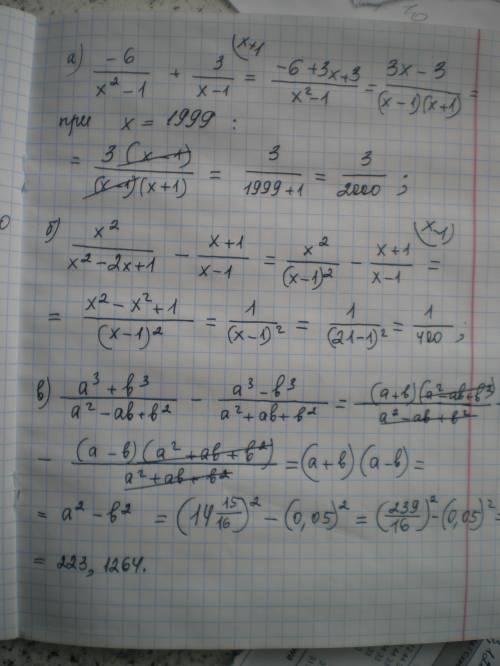 а) -6/(x²-1) + 3/(x-1) (x+1 = (-6+3x+3)/(x²-1) = (3x-3)/((x-1)(x+1)) =
при x = 1999 :
= 3(x-1)/((x-1)(x+1)) = 3/(1999+1) = 3/2000 ;
б) x²/(x²-2x+1) - (x+1)/(x-1) = x²/(x-1)² - (x+1)/(x-1) (x-1) =
= (x²-x²+1)/(x-1)² = 1/(x-1)² = 1/(21-1)² = 1/400 ;
в) (a³+в³)/(a²-aв+в²) - (a³-в³)/(a²+aв+в²) = (a+в)(a²-aв+в²)/(a²-aв+в²) -
- (a-в)(a²+aв+в²)/(a²+aв+в²) = (a+в)(a-в) =
= a²-в² = (14 15/16)² - (0,05)² = (239/16)² - (0,05)² =
= 223,1264.